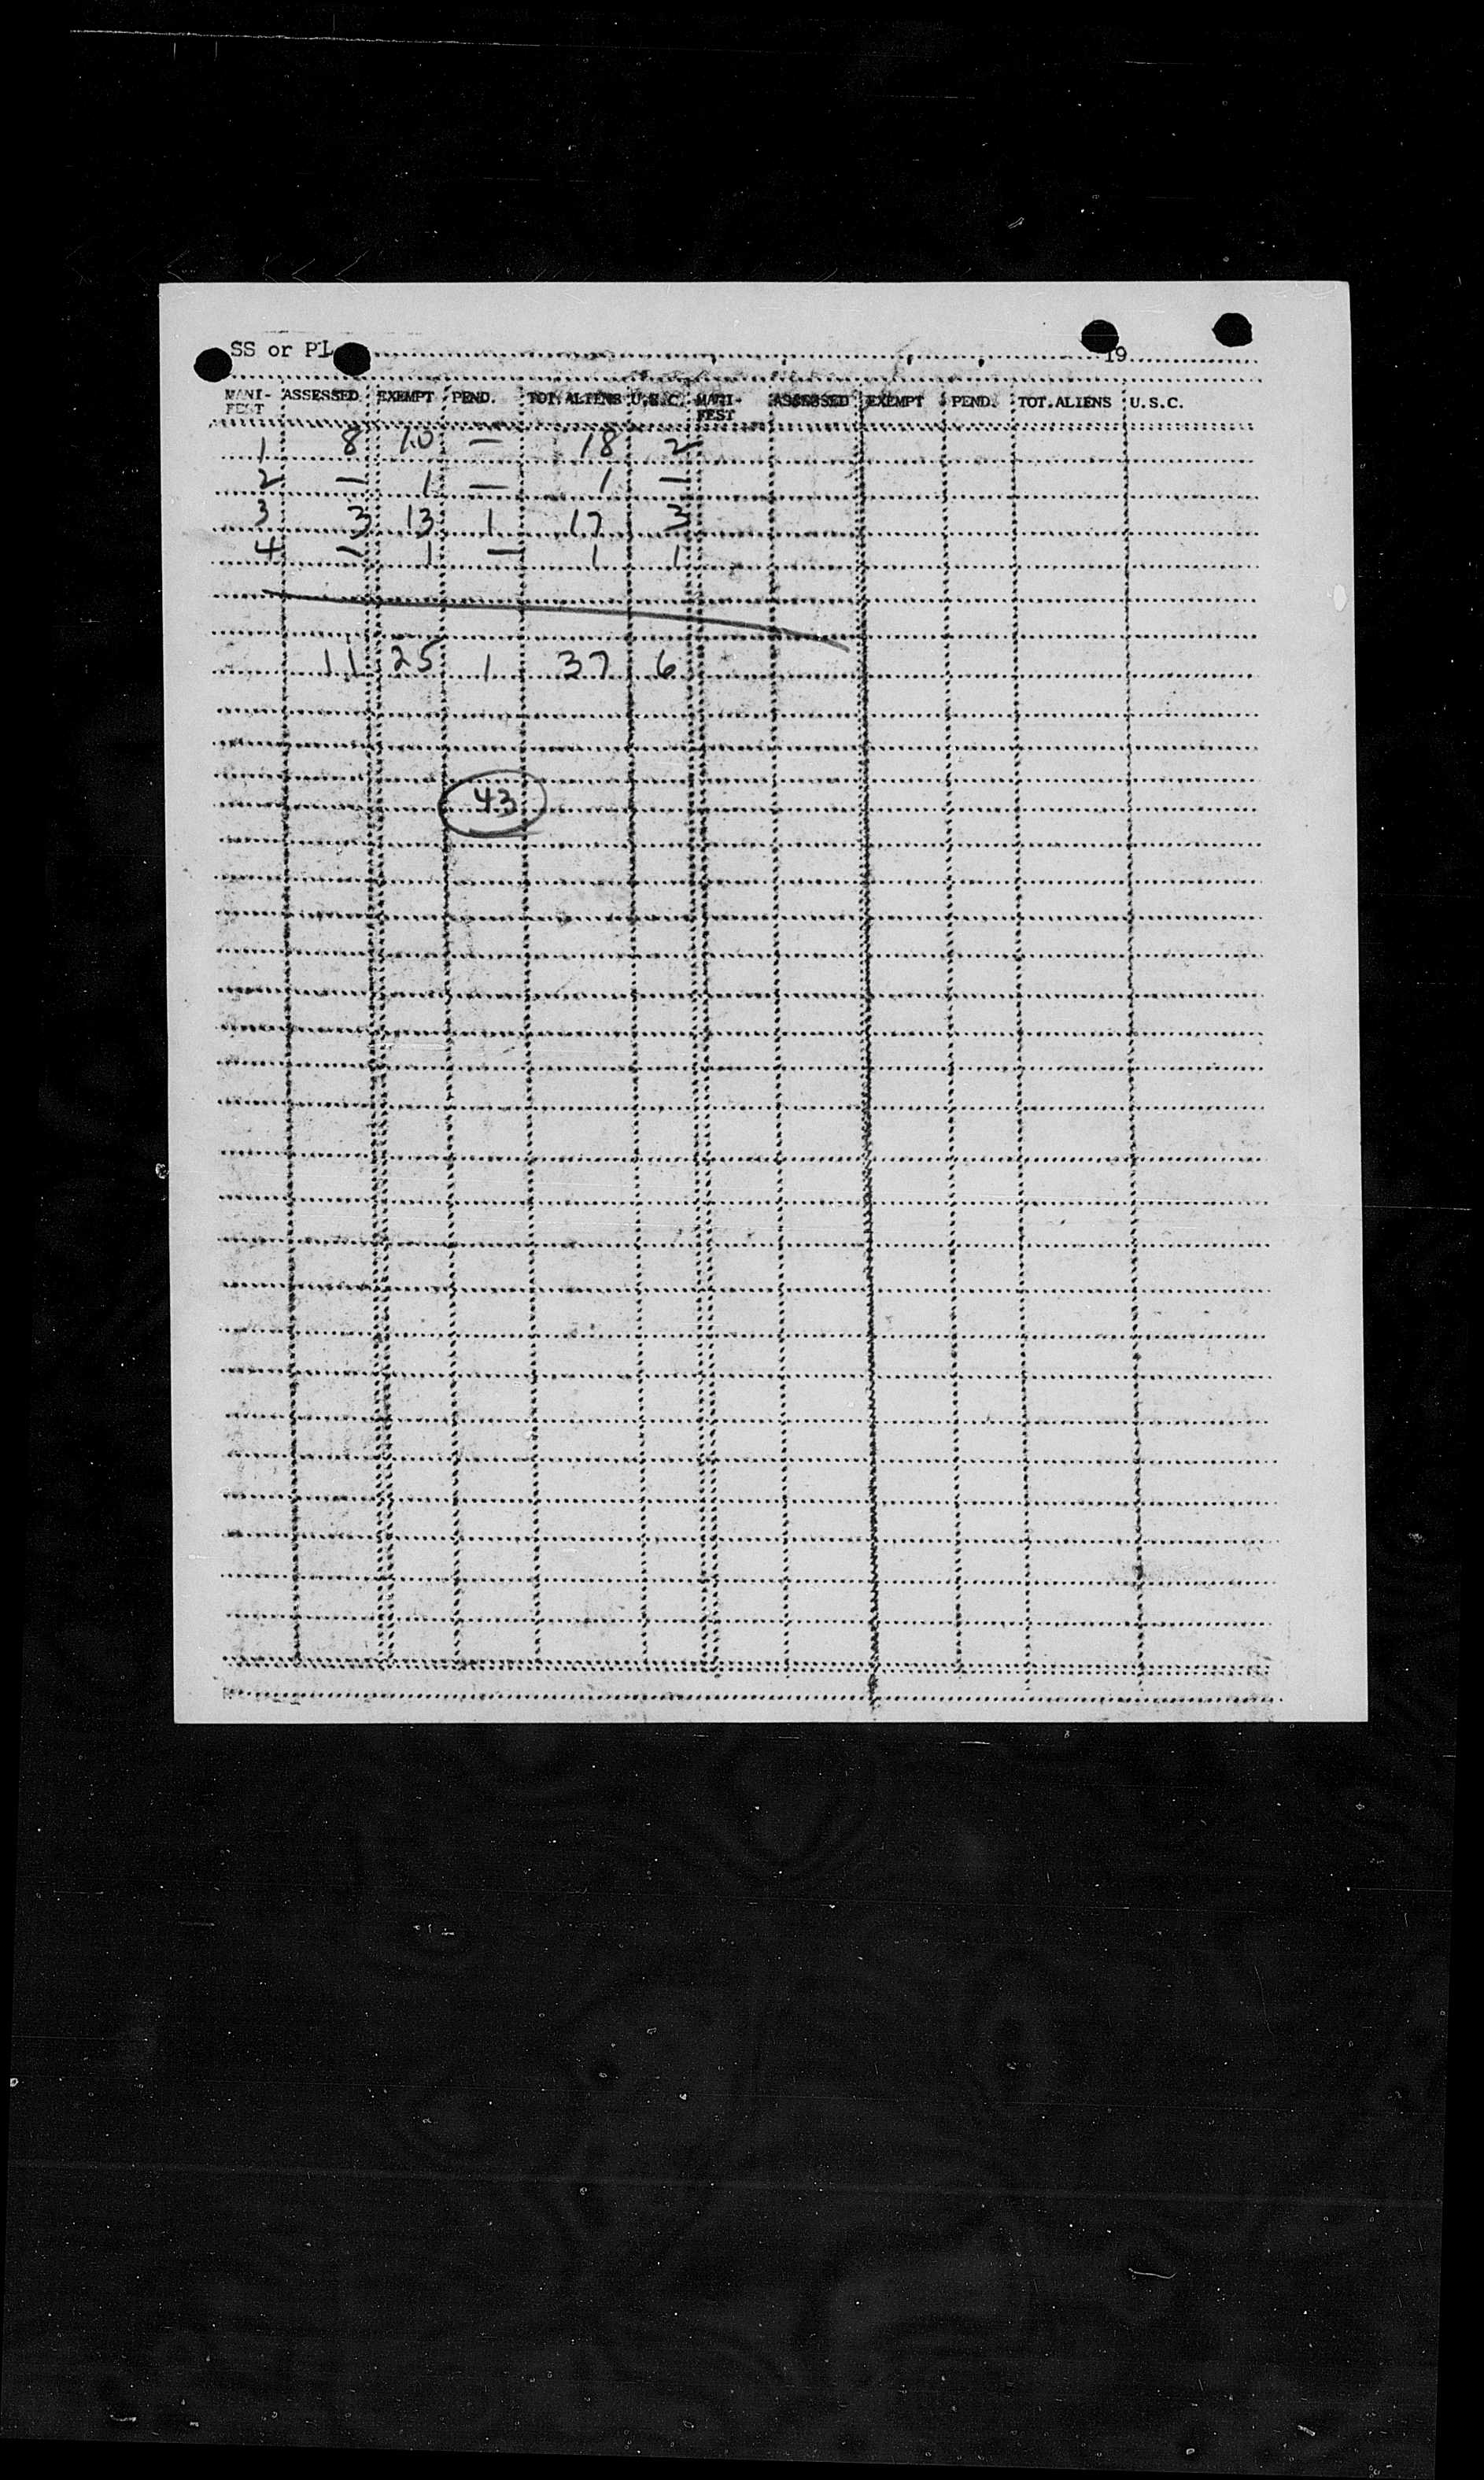 SS or PL 19
MANI-FEST ASSESSED EXEMPT PEND. TOT. ALIENS U.S.C. MANI-FEST ASSESSED EXEMPT PEND. TOT. ALIENS U.S.C.
1 8 10 — 18 2
2 — 1 — 1 —
3 3 13 1 17 3
4 — 1 — 1 1
11 25 1 37 6
43